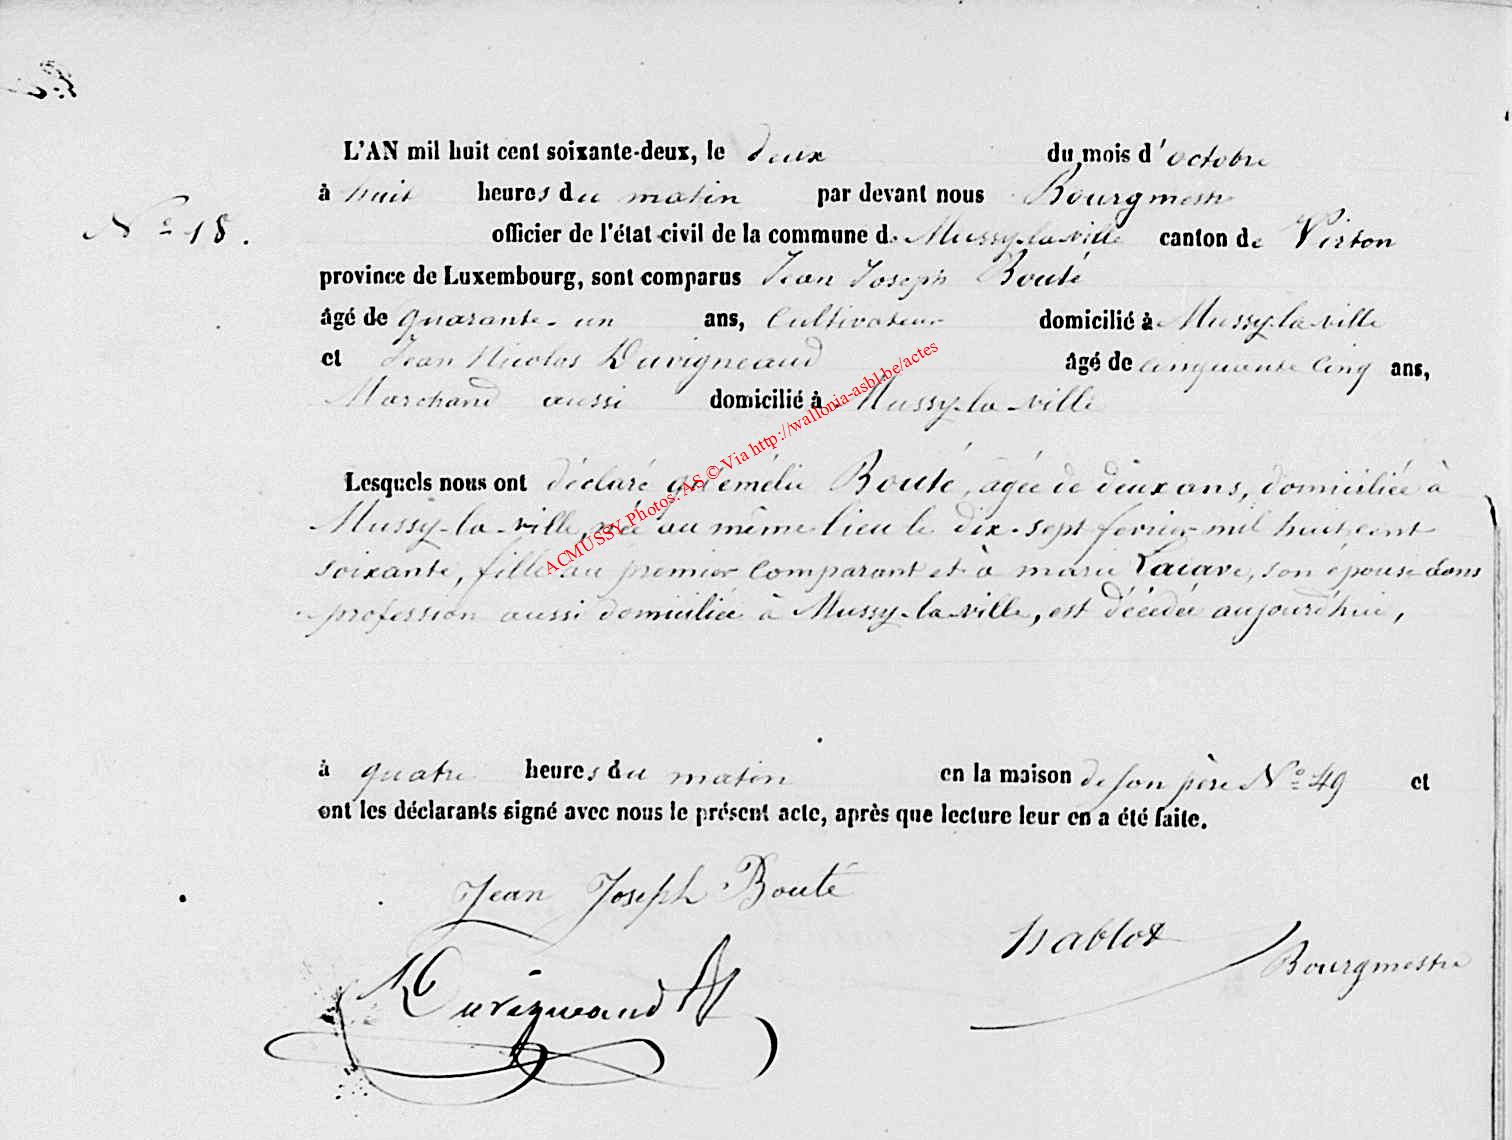 L'AN mil huit cent soixante-deux, le deux du mois d'octobre
à huit heures du matin par devant nous Bourgmestre
N° 18.
officier de l'état civil de la commune de Mussy-la-ville canton de Virton
province de Luxembourg, sont comparus Jean Joseph Bouté
âgé de quarante-un ans, Cultivateur domicilié à Mussy-la-ville
et Jean Nicolas Duvigneaud âgé de cinquante cinq ans,
Marchand aussi domicilié à Mussy-la-ville
Lesquels nous ont déclaré qu'émélie Bouté, âgée de deux ans, domiciliée à
Mussy-la-ville, née au même lieu le dix-sept fevrier mil huit cent
soixante, fille du premier comparant et à marie Lacave, son épouse sans
profession aussi domiciliée à Mussy-la-ville, est décédée aujourd'hui,
à quatre heures du matin en la maison de son père N° 49 et
ont les déclarants signé avec nous le présent acte, après que lecture leur en a été faite.
Jean Joseph Bouté
Hablot Bourgmestre
Duvigneaud
ACMUSSY Photos: AS © Via http://wallonia-asbl.be/actes